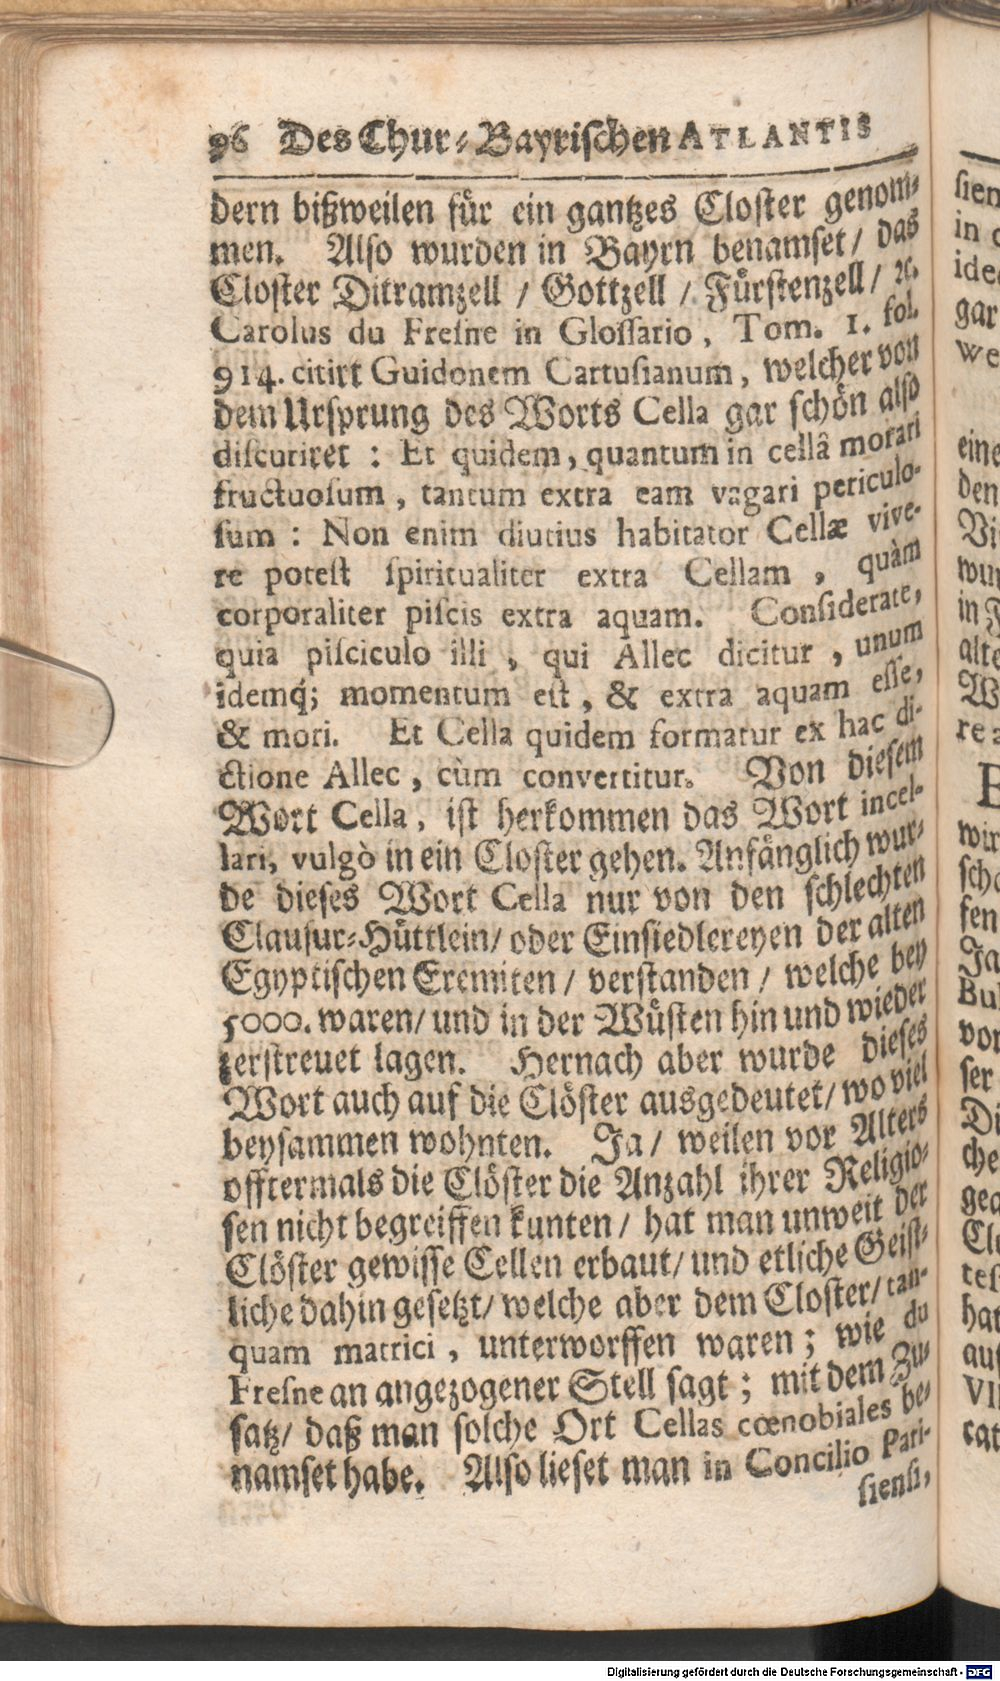 96 Des Chur-Bayrischen ATLANTIS
dern bißweilen für ein gantzes Closter genom-
men. Also wurden in Bayrn benamset/ das
Closter Ditramzell / Gottzell / Fürstenzell / ꝛc.
Carolus du Fresne in Glossario, Tom. 1. fol.
914. citirt Guidonem Cartusianum, welcher von
dem Ursprung des Worts Cella gar schön also
discuriret : Et quidem, quantum in cellâ morari
fructuosum, tantum extra eam vagari periculo-
sum : Non enim diutius habitator Cellæ vive-
re potest spiritualiter extra Cellam, quàm
corporaliter piscis extra aquam. Considerate,
quia pisciculo illi, qui Allec dicitur, unum
idemq́; momentum est, & extra aquam esse,
& mori. Et Cella quidem formatur ex hac di-
ctione Allec, cùm convertitur. Von diesem
Wort Cella, ist herkommen das Wort incel-
lari, vulgò in ein Closter gehen. Anfänglich wur-
de dieses Wort Cella nur von den schlechten
Clausur-Hüttlein/ oder Einsiedlereyen der alten
Egyptischen Eremiten / verstanden / welche bey
5000. waren/ und in der Wüsten hin und wieder
zerstreuet lagen. Hernach aber wurde dieses
Wort auch auf die Clöster ausgedeutet/ wo viel
beysammen wohnten. Ja/ weilen vor Alters
offtermals die Clöster die Anzahl ihrer Religio-
sen nicht begreiffen kunten/ hat man unweit der
Clöster gewisse Cellen erbaut/ und etliche Geist-
liche dahin gesetzt/ welche aber dem Closter/ tan-
quam matrici, unterworffen waren; wie du
Fresne an angezogener Stell sagt; mit dem Zu-
satz/ daß man solche Ort Cellas cœnobiales be-
namset habe. Also lieset man in Concilio Pari-
siensi,
Digitalisierung gefördert durch die Deutsche Forschungsgemeinschaft - DFG